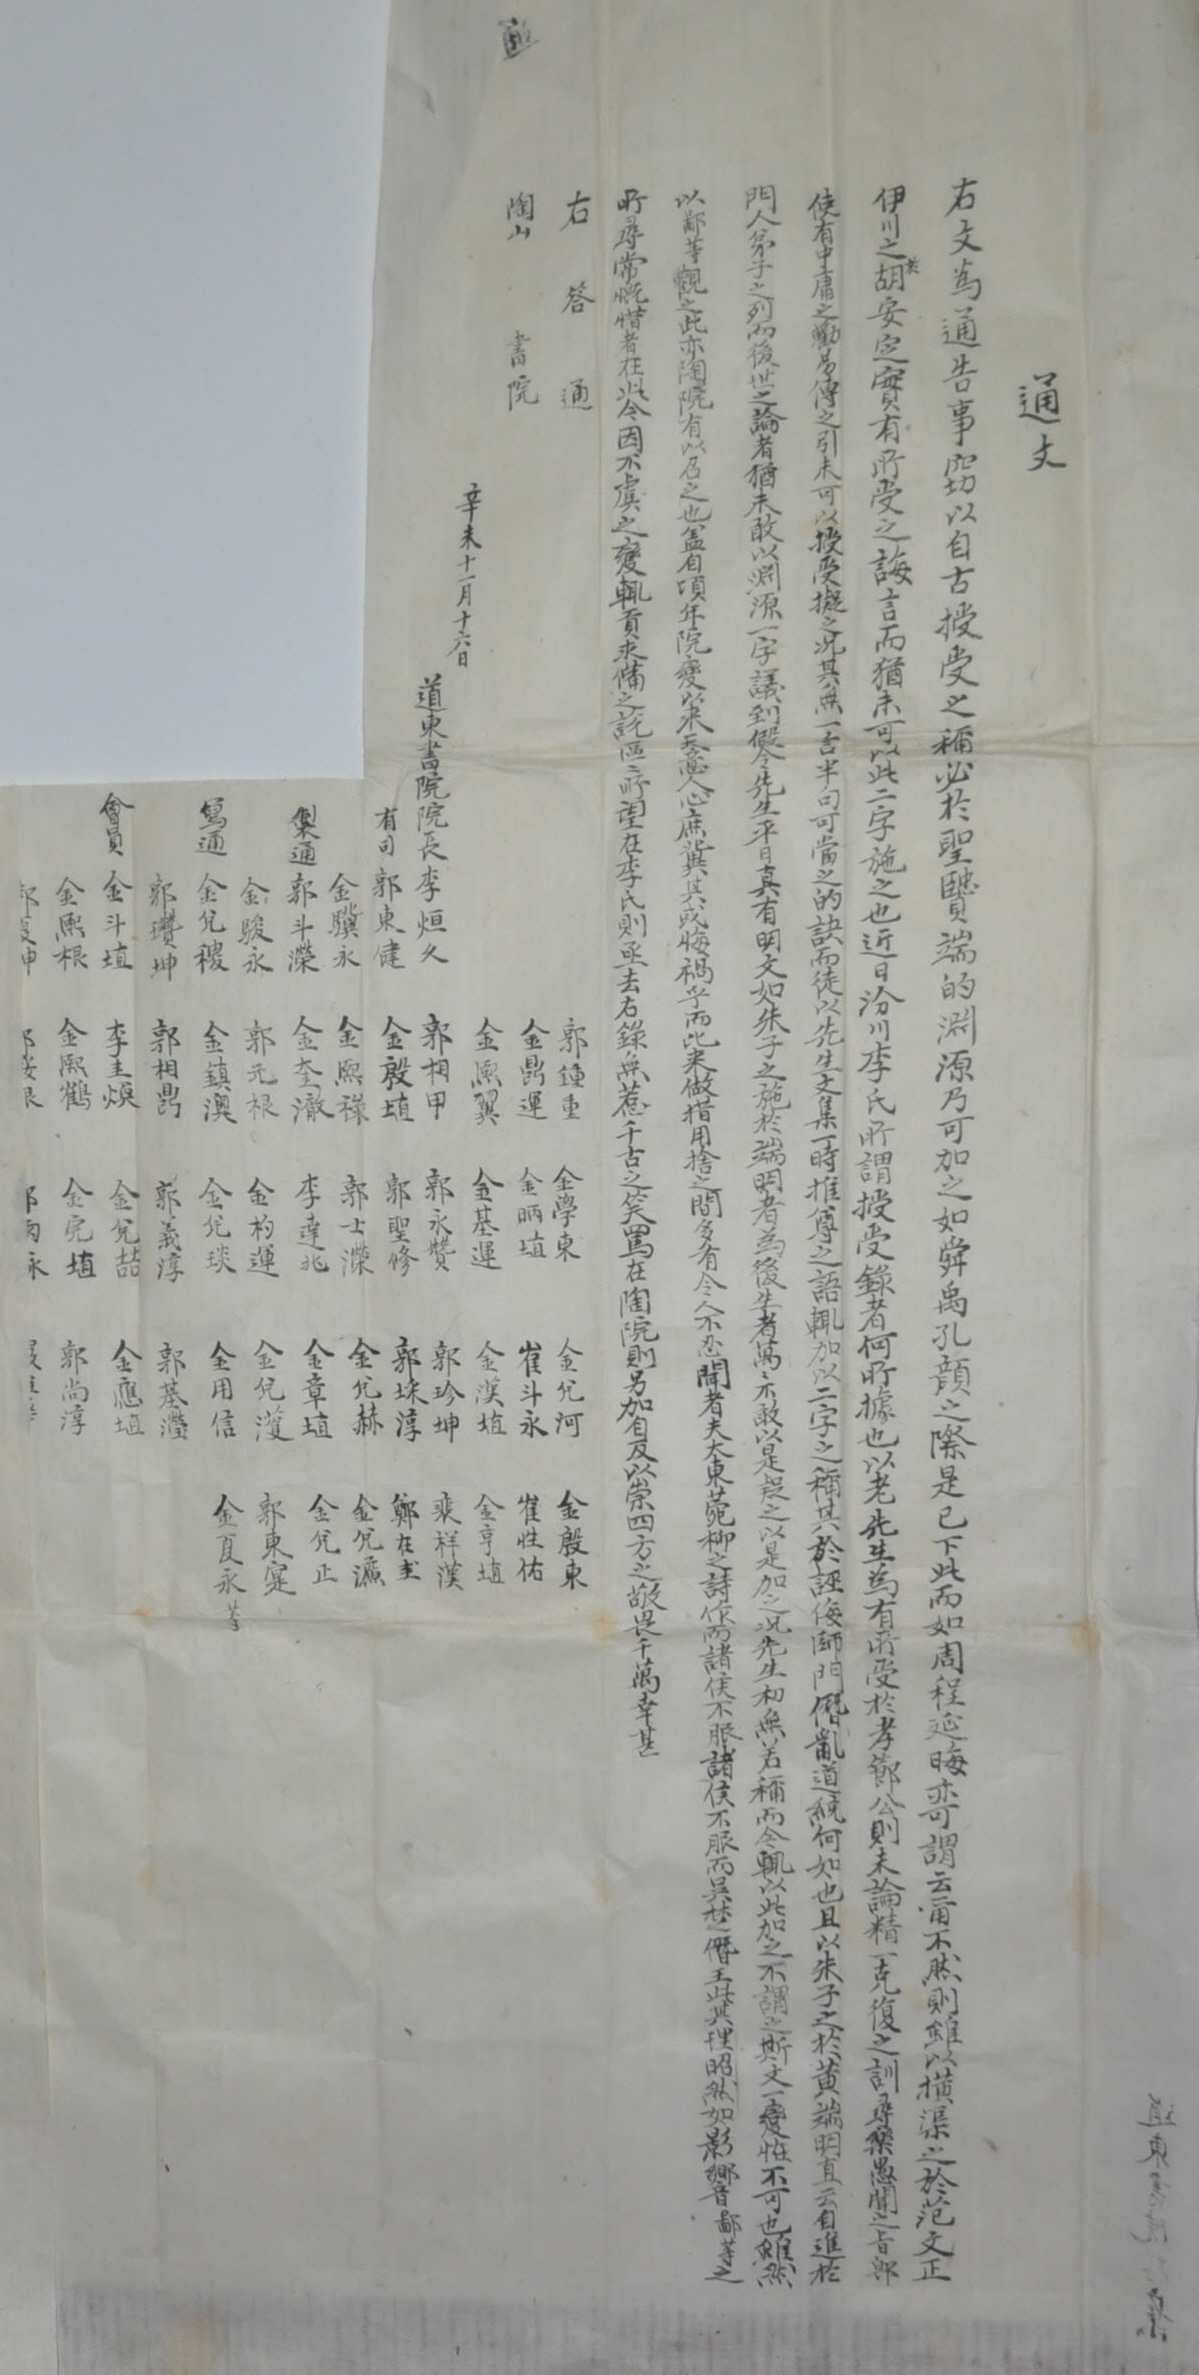 通文
右文爲通告事窃以自古授受之稱必於聖賢端的淵源乃可加之如舜禹孔顔之際是已下此而如周程延晦亦可謂云甭不然則雖以横渠之於范文正
伊川之於胡安定實有所受之誨言而猶未可以此二字施之也近日汾川李氏所謂授受錄者何所據也以老先生爲有所受於孝節公則未論精一克復之訓尋樂愚聞之旨郎
使有中庸之勸易傳之引未可以授受擬之况其無一言半句可當之的訣而徒以先生文集一時推尊之語輒加以二字之稱其於誣侮師門僭亂道統何如也且以朱子之於黄端明直云自進於
門人弟子之列而後世之論者猶未敢以淵源一字議到假令先生平日真有明文如朱子之施於端明者爲後生者萬不敢以是疑之以是加之况先生初無若稱而今輒以此加之不謂之斯文一變恠不可也雖然
以鄙等觀之此亦陶院有以召之也盖自頃年院變以來吾意人心庶冀其或悔禍乎而比來做措用捨之間多有令人不忍聞者夫大東菀柳之詩作而諸侯不服諸侯不服而吳楚之僭王此其理昭然如影響鄙等之
所尋常慨惜者在此今因不虞之變輒貢求備之說區ミ所望在李氏則亟去右錄無惹千古之笑罵在陶院則另加自反以崇四方之敬畏千萬幸甚
右答通
陶山書院
辛未十一月十六日
道東書院院長李烜久
有司郭東健
金驥永
製通郭斗瀅
金駿永
寫通金允稷
郭瓚坤
會員金斗埴
金熙根
郭鍾重
金鼎運
金熙翼
郭相甲
金殷埴
金熙祿
金奎澈
郭元根
金鎮澳
郭相鼎
李圭煥
金熙鶴
金學東
金昞埴
金基運
郭永贊
郭聖修
郭士瀅
李達兆
金杓運
金允琰
郭義淳
金允喆
金完埴
金允河
崔斗永
金漢埴
郭珍坤
郭埰淳
金允赫
金章埴
金允濩
金用信
郭基瀅
金應埴
郭尚淳
金殷東
崔性佑
金亨埴
裴祥漢
鄭在圭
金允濂
金允正
郭東寔
金夏永等